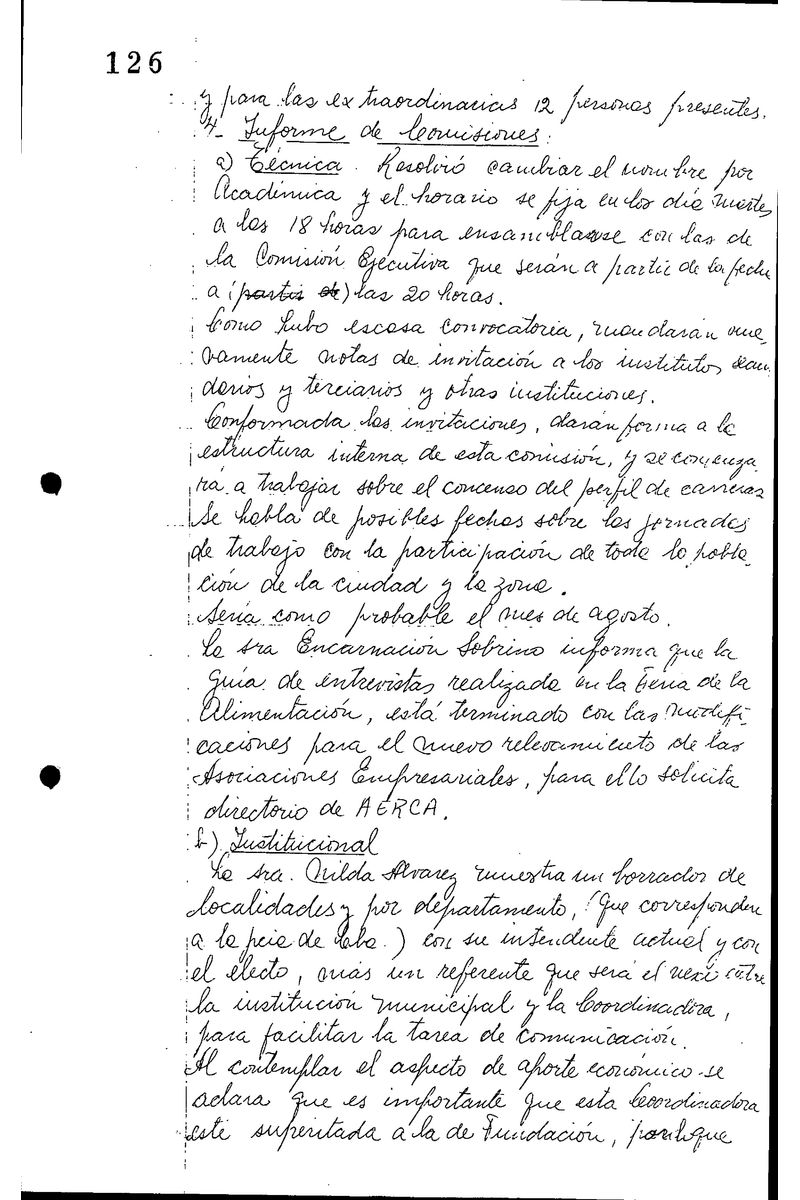 126
y para las extraordinarias 12 personas presentes.
4- Informe de Comisiones:
a) Técnica. Resolvió cambiar el nombre por
Académica y el horario se fija en los día martes
a las 18 horas para ensamblarse con las de
la Comisión Ejecutiva que serán a partir de la fecha
a (partir de) las 20 horas.
Como hubo escasa convocatoria, mandarán nue-
vamente notas de invitación a los institutos secun-
darios y terciarios y otras instituciones.
Conformada las invitaciones, darán forma a la
estructura interna de esta comisión, y se comenza
rá a trabajar sobre el concenso del perfil de carreras
Se habla de posibles fechas sobre las jornadas
de trabajo con la participación de toda la pobla-
ción de la ciudad y la zona.
Sería como probable el mes de agosto.
La sra Encarnación Sobrino informa que la
guía de entrevistas realizada en la Feria de la
Alimentación, está terminado con las modifi-
caciones para el nuevo relevamiento de las
Asociaciones Empresariales, para ello solicita
directorio de AERCA.
b) Institucional
La sra. Nilda Alvarez muestra un borrador de
localidades y por departamento, (que corresponden
a la pcia de Cba.) con su intendente actual y con
el electo, más un referente que será el nexo entre
la institución municipal y la Coordinadora,
para facilitar la tarea de comunicación.
Al contemplar el aspecto de aporte económico se
aclara que es importante que esta Coordinadora
esté supeditada a la de Fundación, porque